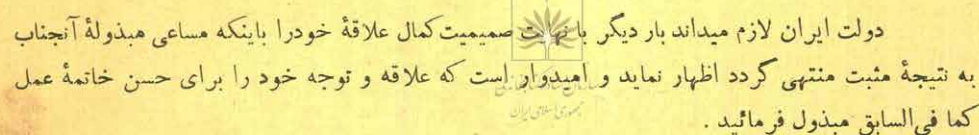 دولت ایران لازم میداند بار دیگر با نهایت صمیمیت کمال علاقهٔ خودرا باینکه مساعی مبذولهٔ آنجناب
به نتیجهٔ مثبت منتهی گردد اظهار نماید و امیدوار است که علاقه و توجه خود را برای حسن خاتمهٔ عمل
کما فی‌السابق مبذول فرمائید .
جمهوری اسلامی ایران